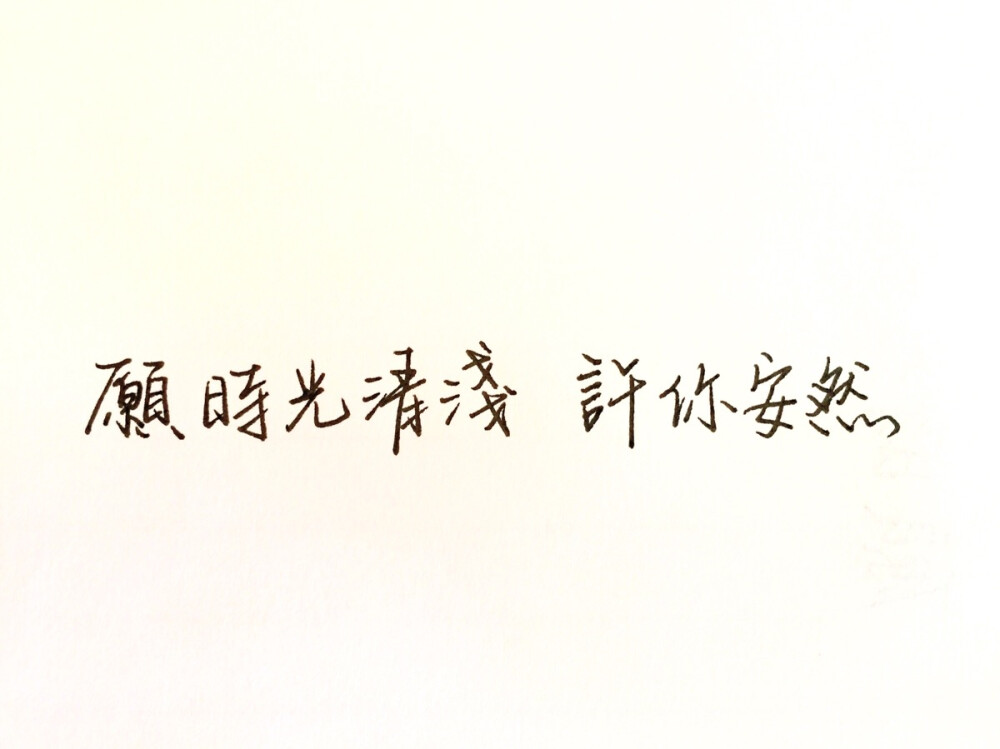 願時光清淺 許你安然